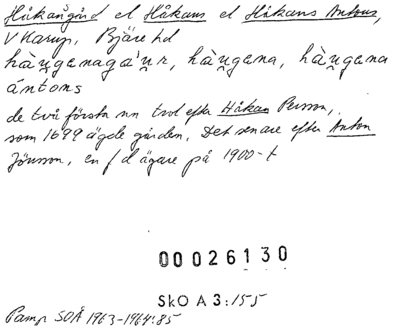 Håkangård el Håkans el Håkans Antons,
V Karup, Bjäre hd
hàu̯gɛnaga'u̯r, hàu̯gɛna, hàu̯gɛna
ántons
de två första nn trol efter Håkan Persson,
som 1699 ägde gården. Det senare efter Anton
Jönsson, en f d ägare på 1900-t
00026130
SkO A 3:155
Pamp SOÅ 1963-1964:85